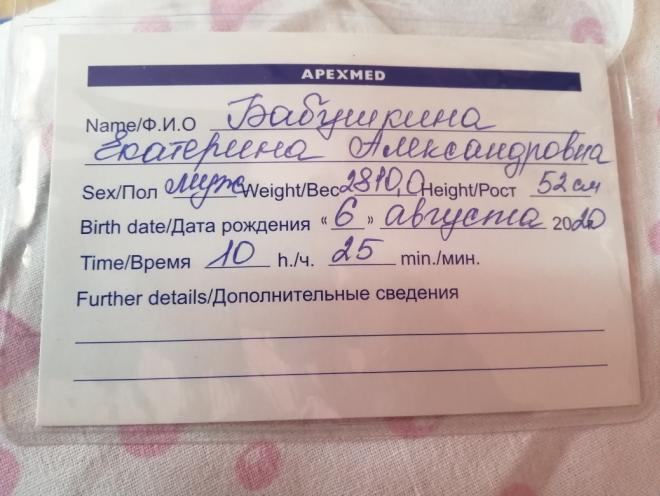 APEXMED
Name/Ф.И.О Бабушкина
Екатерина Александровна
Sex/Пол муж Weight/Вес 2810,0 Height/Рост 52 см
Birth date/Дата рождения « 6 » августа 2020
Time/Время 10 h./ч. 25 min./мин.
Further details/Дополнительные сведения